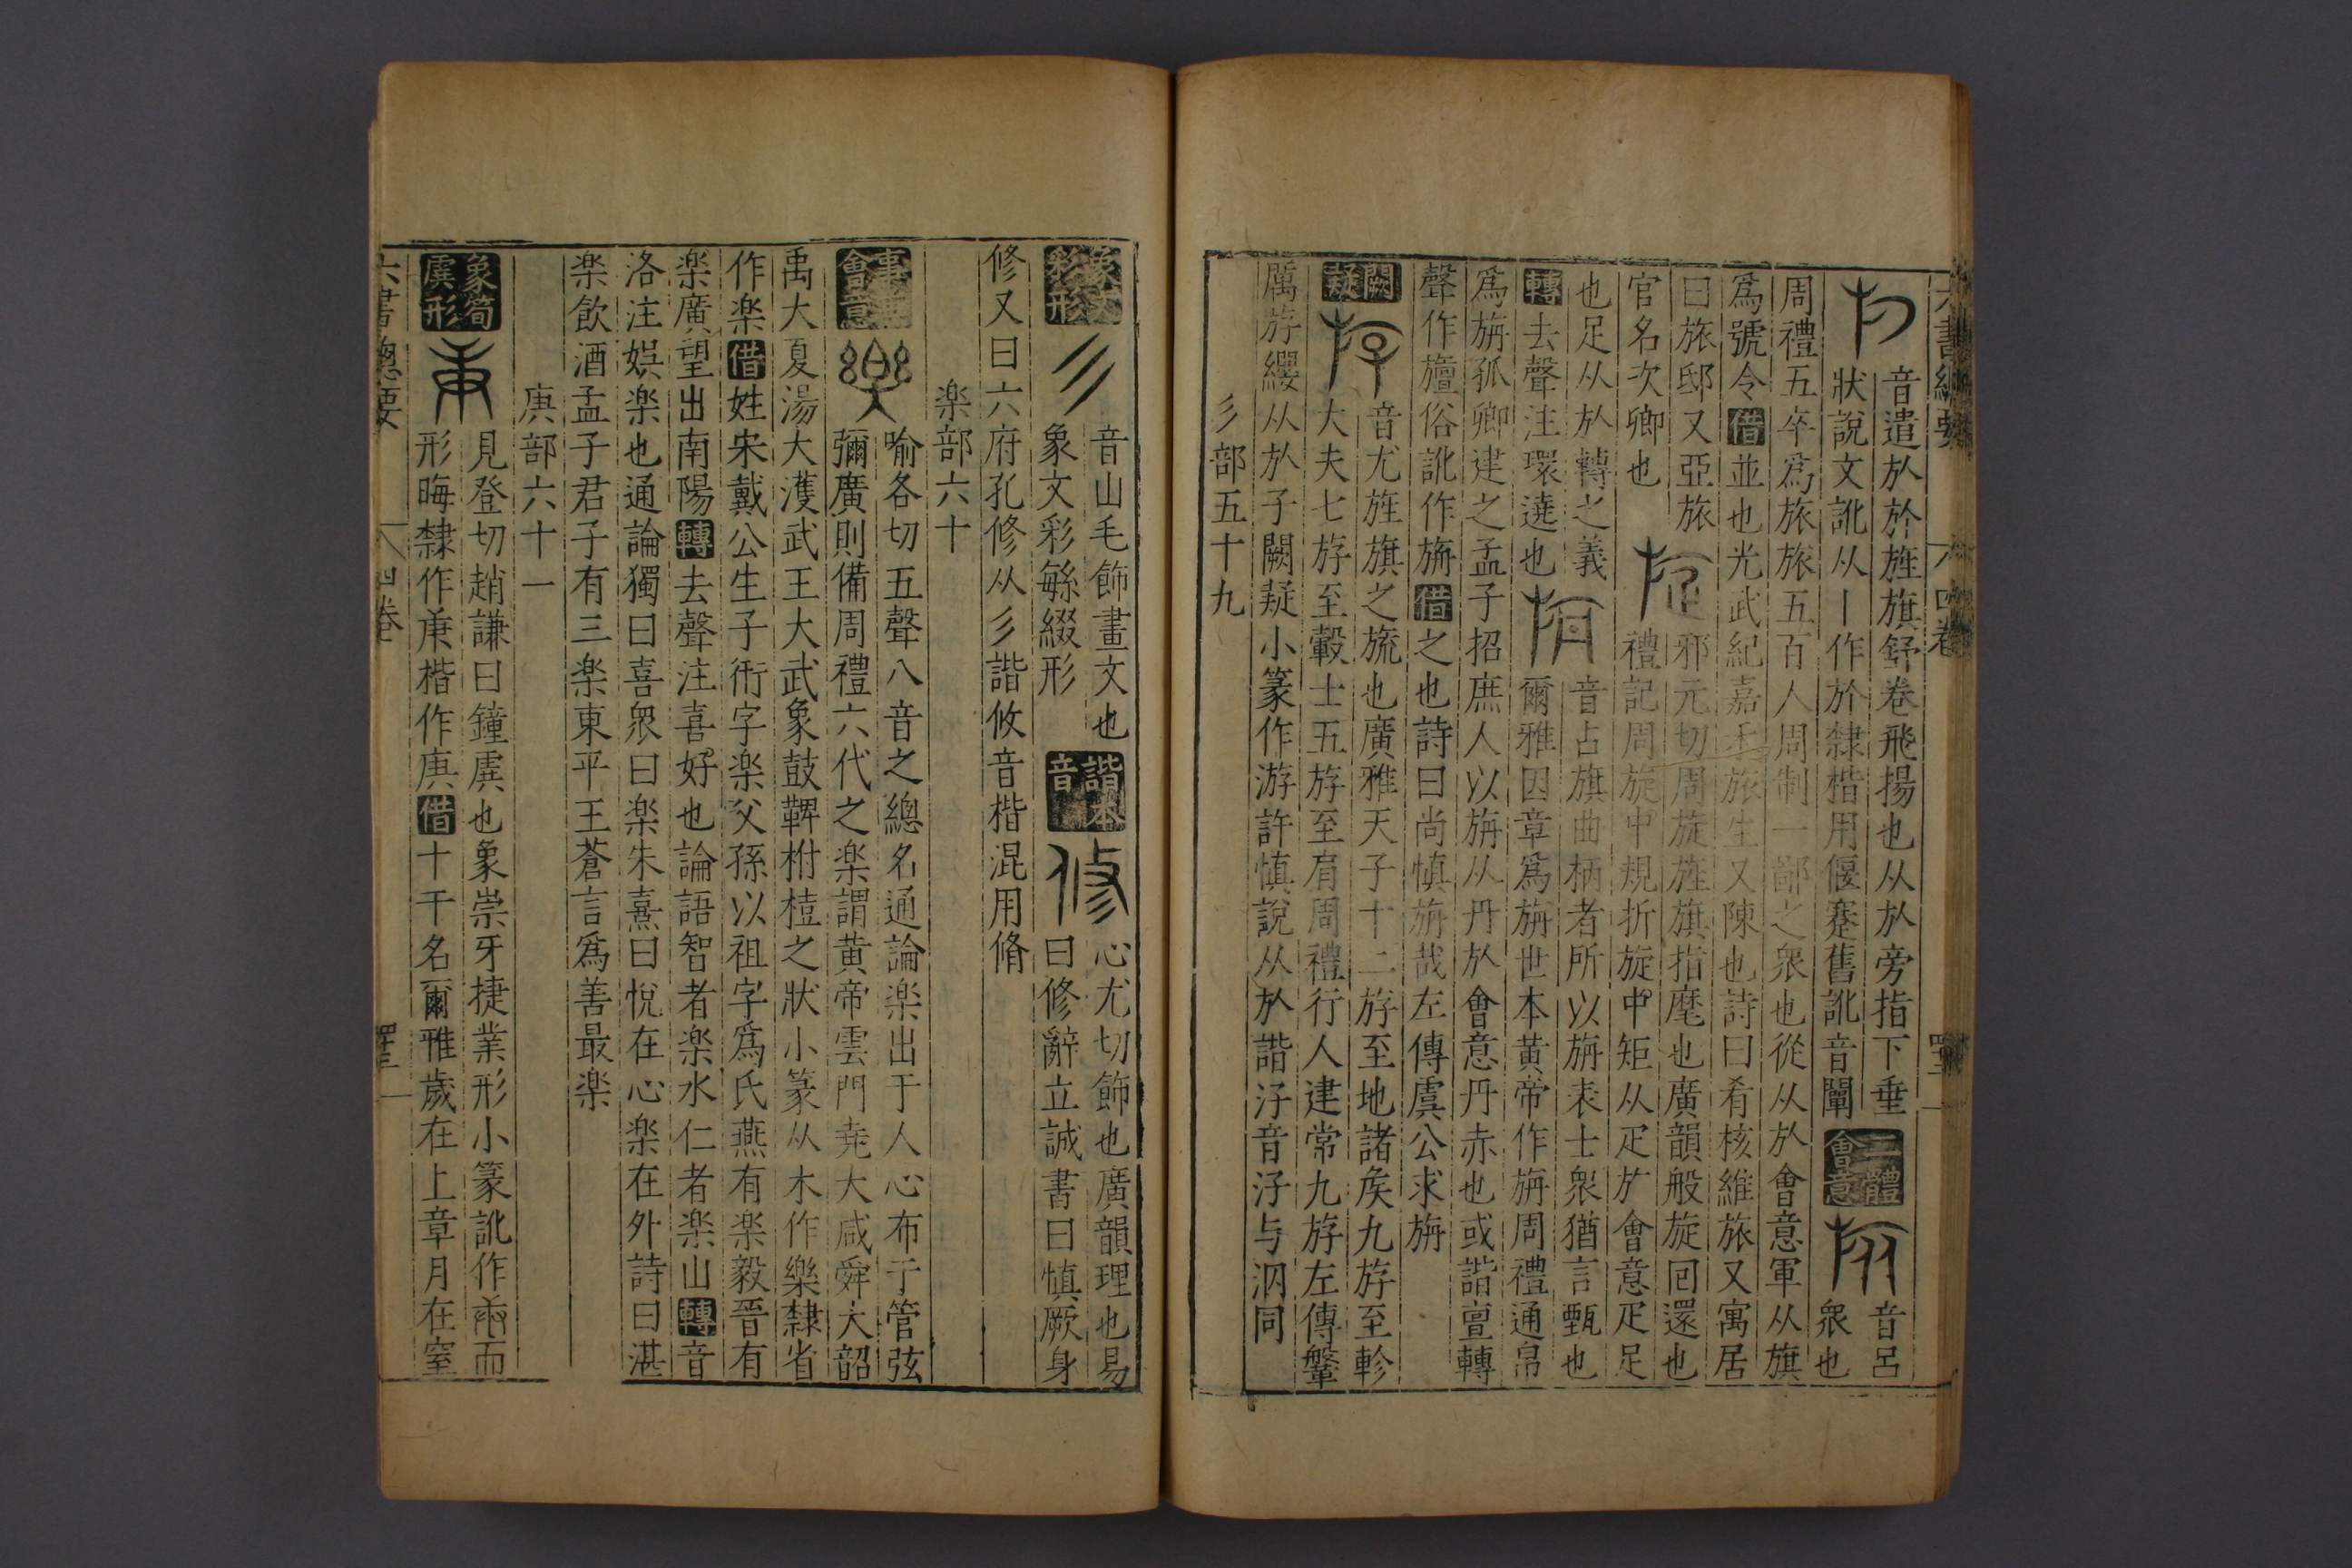 六書總要
四卷
音遣㫃於旌旗舒卷飛揚也从㫃旁指下垂
狀說文訛从丨作於隸楷用偃蹇舊訛音闡
二體會意
音呂
衆也
周禮五卒爲旅旅五百人周制一鄙之衆也從从㫃會意軍从旗
爲號令借並也光武紀嘉禾旅生又陳也詩曰肴核維旅又寓居
曰旅邸又亞旅
官名次卿也
邪元切周旋旌旗指麾也廣韻般旋回還也
禮記周旋中規折旋中矩从疋㫃會意疋足
也足从㫃轉之義
轉去聲注環遶也
音占旗曲柄者所以旃表士衆猶言甄也
爾雅因章爲旃世本黃帝作旃周禮通帛
爲旃孤卿建之孟子招庶人以旃从丹㫃會意丹赤也或諧亶轉
聲作旜俗訛作旃借之也詩曰尚慎旃哉左傳虞公求旃
闕疑
音尤旌旗之旒也廣雅天子十二斿至地諸矦九斿至軫
大夫七斿至轂士五斿至肩周禮行人建常九斿左傳鞶
厲斿纓从㫃子闕疑小篆作游許慎說从㫃諧汓音汓与泅同
彡部五十九
象文彩形
音山毛飾畫文也
象文彩毓綴形
諧本音
心尤切飾也廣韻理也易
曰修辭立誠書曰慎厥身
修又曰六府孔修从彡諧攸音楷混用脩
楽部六十
事兼會意
喻各切五聲八音之總名通論楽出于人心布于管弦
彌廣則備周禮六代之楽謂黃帝雲門堯大咸舜大韶
禹大夏湯大濩武王大武象鼓鞞柎樝之狀小篆从木作樂隸省
作楽借姓宋戴公生子衎字楽父孫以祖字爲氏燕有楽毅晉有
楽廣望出南陽轉去聲注喜好也論語智者楽水仁者楽山轉音
洛注娛楽也通論獨曰喜衆曰楽朱熹曰悅在心楽在外詩曰湛
楽飲酒孟子君子有三楽東平王蒼言爲善最楽
庚部六十一
象筍虡形
見登切趙謙曰鐘虡也象崇牙捷業形小篆訛作𠔀而
形晦隸作𢈲楷作庚借十干名爾雅歲在上章月在窒
六書總要
四卷